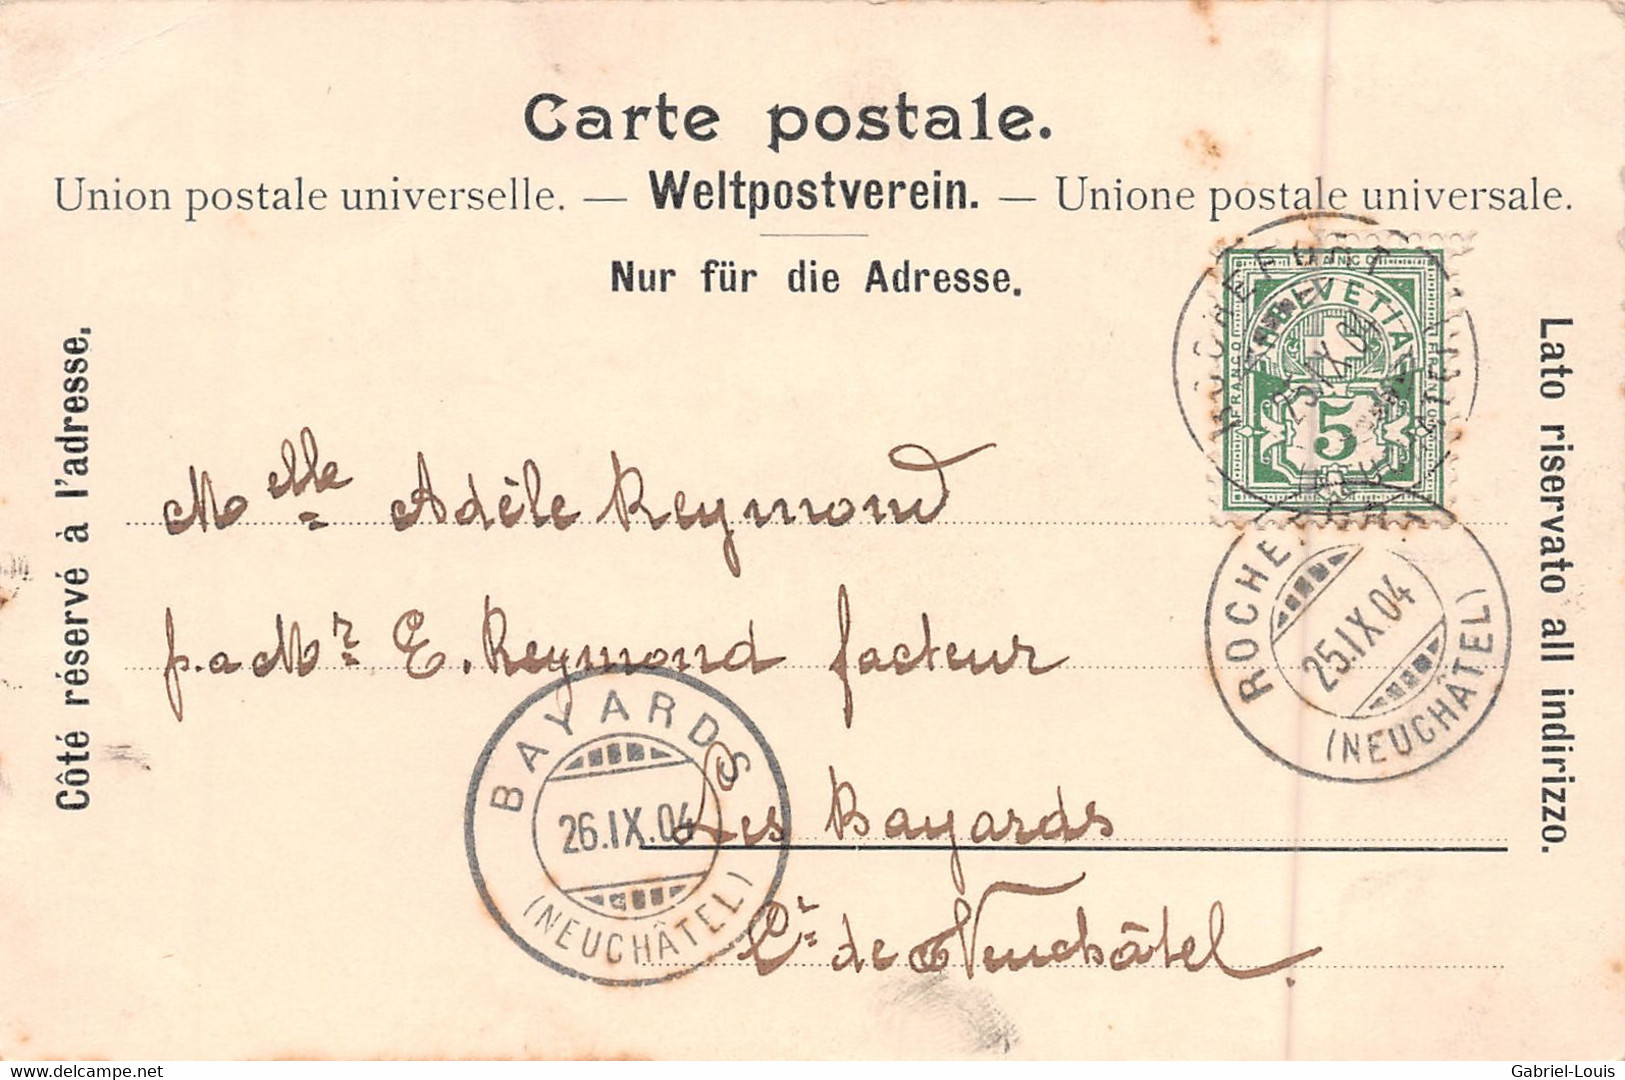 Carte postale.
Union postale universelle. — Weltpostverein. — Unione postale universale.
Nur für die Adresse.
Côté réservé à l'adresse.
Lato riservato all indirizzo.
FRANCO
HELVETIA
FRANCO
FRANCO
5
ROCHEFORT
25.IX.04
(NEUCHÂTEL)
Melle Adèle Reymond
p.a Mr E. Reymond facteur
Les Bayards
Ct de Neuchâtel.
ROCHE
25.IX.04
(NEUCHÂTEL)
BAYARDS
26.IX.04
(NEUCHÂTEL)
delcampe.net
Gabriel-Louis